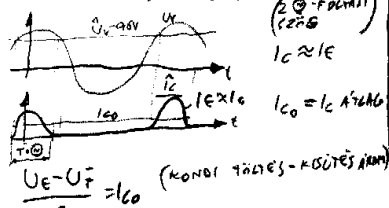 Û_v=90V U_V
(2Θ-FOLYÁSI
SZÖG
I_C ≈ I_E
t
I_C0 Î_C I_E≈I_C
I_C0 = I_C ÁTLAG
t
T·Θ
U_E-U_F = I_C0 (KONDI TÖLTÉS-KISÜTÉS ÁRAM)